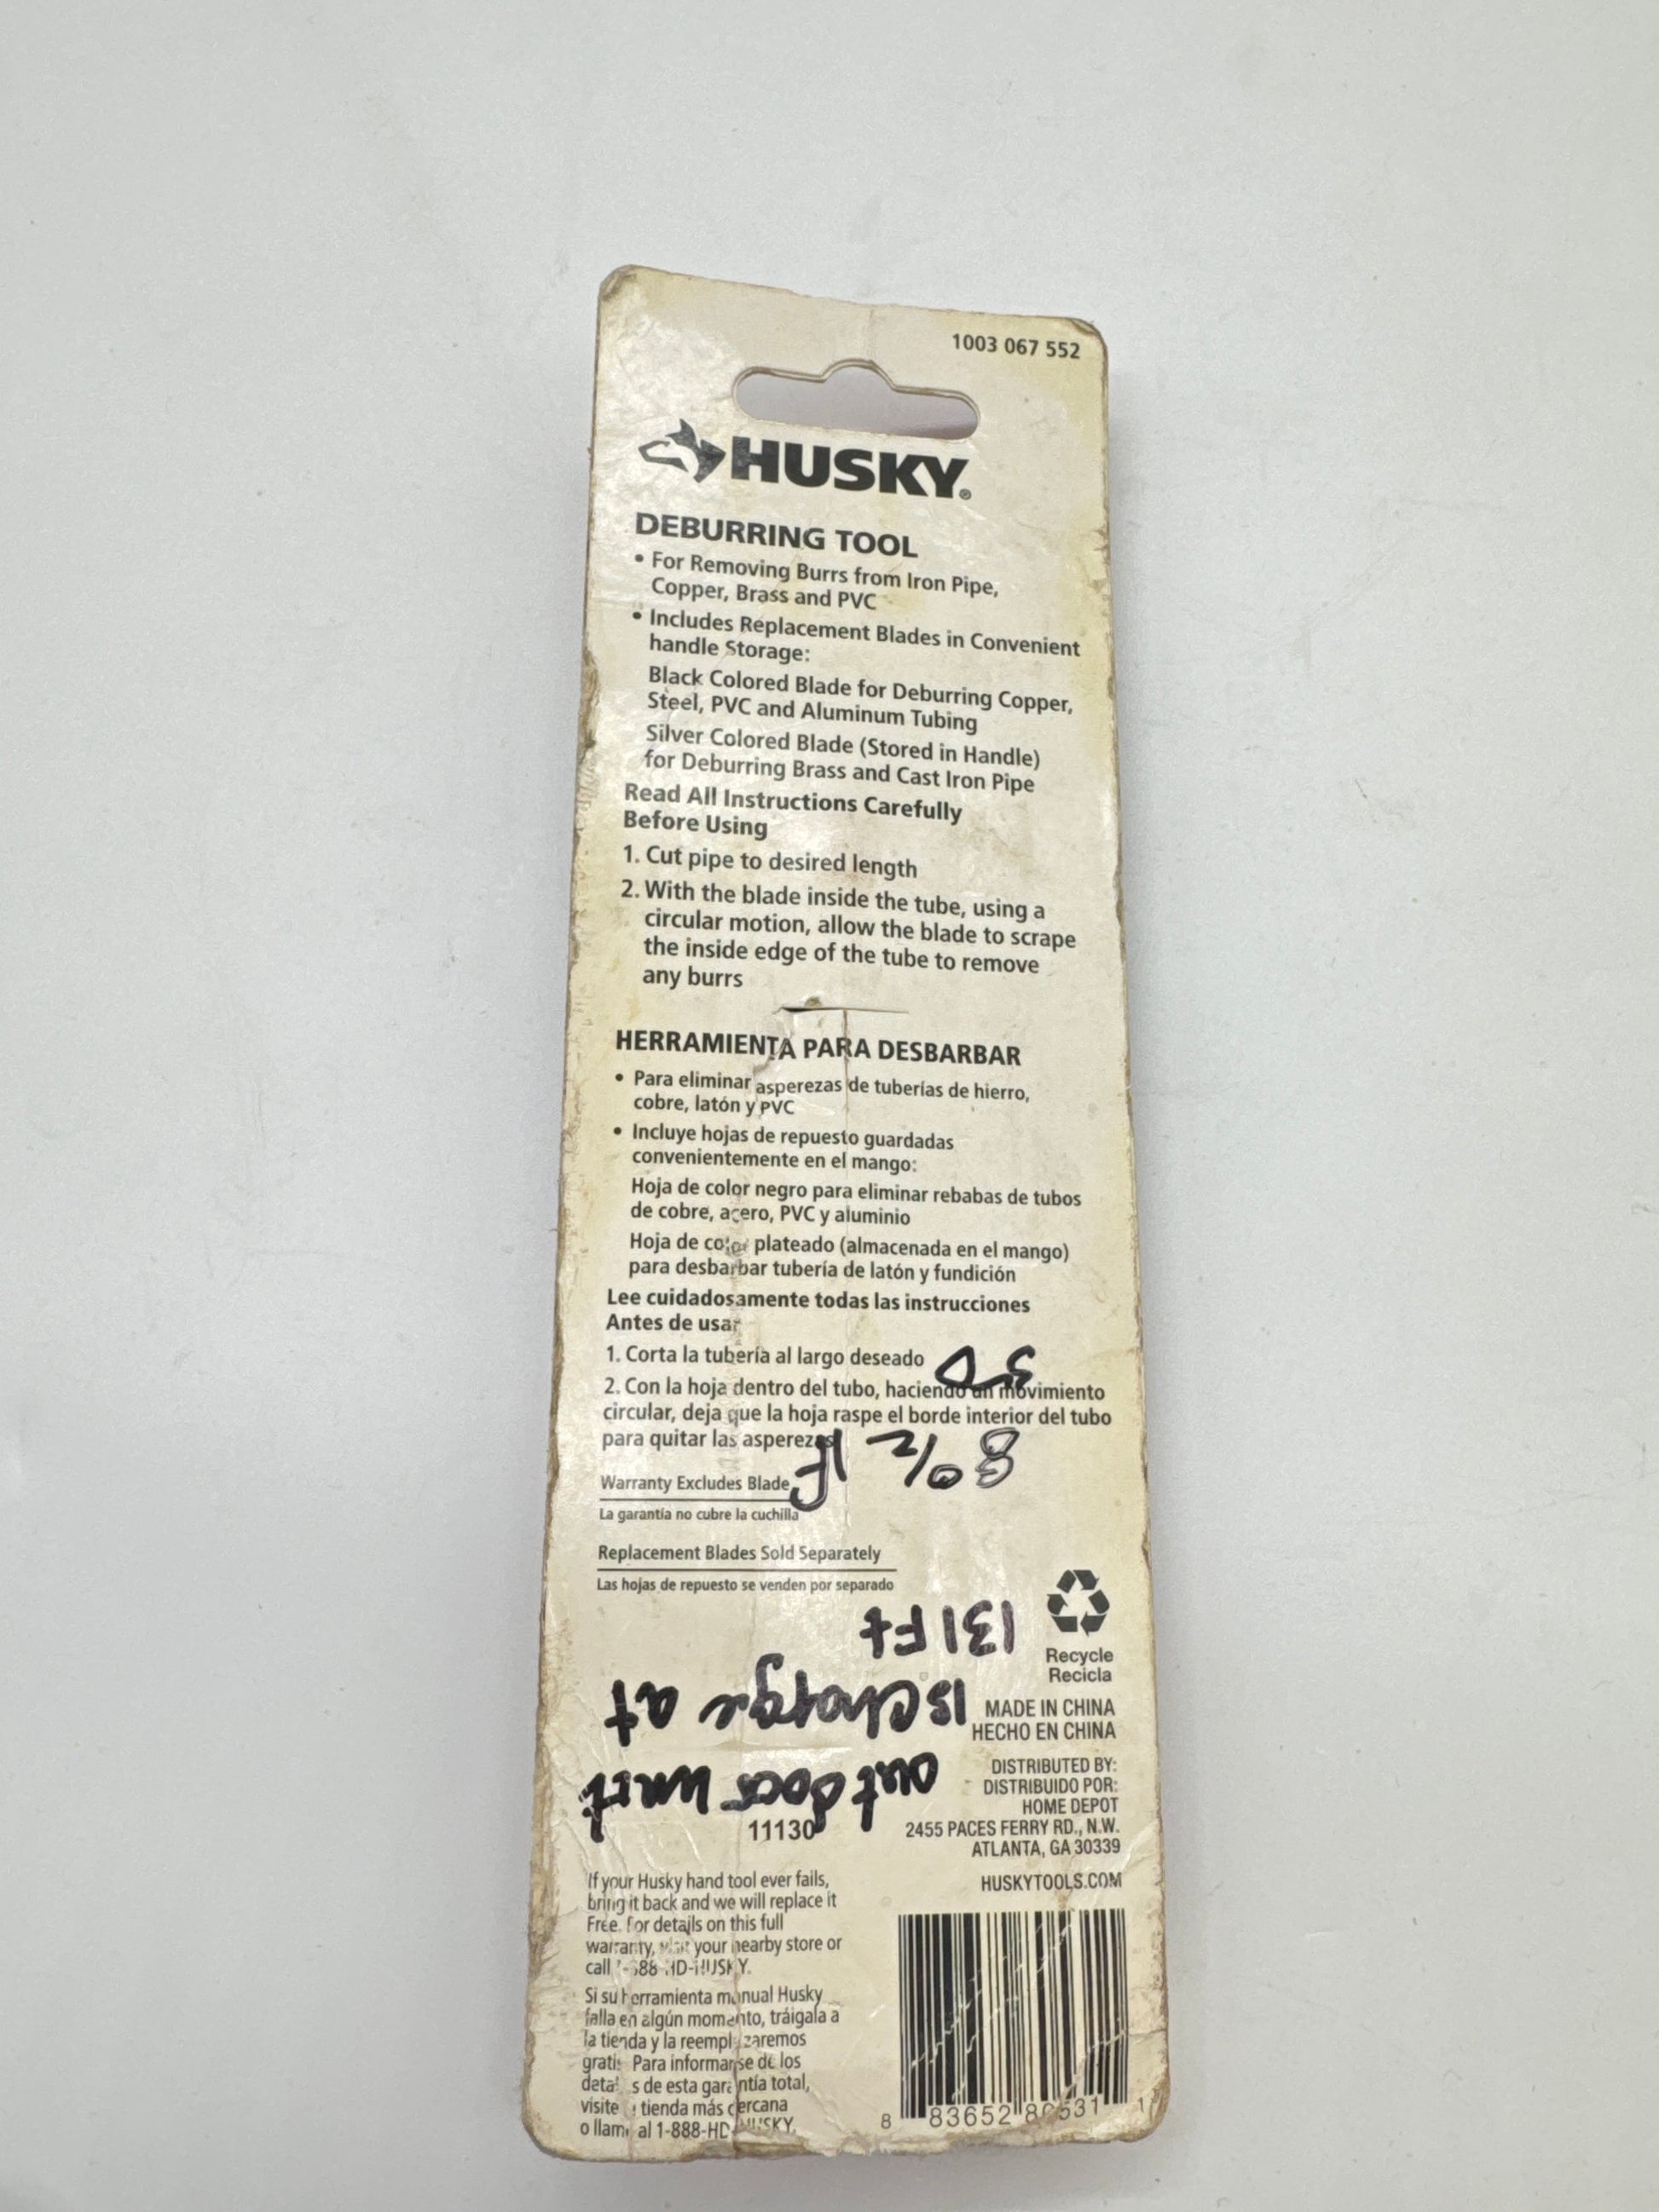 1003 067 552
HUSKY®
DEBURRING TOOL
• For Removing Burrs from Iron Pipe,
Copper, Brass and PVC
• Includes Replacement Blades in Convenient
handle Storage:
Black Colored Blade for Deburring Copper,
Steel, PVC and Aluminum Tubing
Silver Colored Blade (Stored in Handle)
for Deburring Brass and Cast Iron Pipe
Read All Instructions Carefully
Before Using
1. Cut pipe to desired length
2. With the blade inside the tube, using a
circular motion, allow the blade to scrape
the inside edge of the tube to remove
any burrs
HERRAMIENTA PARA DESBARBAR
• Para eliminar asperezas de tuberías de hierro,
cobre, latón y PVC
• Incluye hojas de repuesto guardadas
convenientemente en el mango:
Hoja de color negro para eliminar rebabas de tubos
de cobre, acero, PVC y aluminio
Hoja de color plateado (almacenada en el mango)
para desbarbar tubería de latón y fundición
Lee cuidadosamente todas las instrucciones
Antes de usar
1. Corta la tubería al largo deseado
2. Con la hoja dentro del tubo, haciendo un movimiento
circular, deja que la hoja raspe el borde interior del tubo
para quitar las asperezas
Warranty Excludes Blade
La garantía no cubre la cuchilla
Replacement Blades Sold Separately
Las hojas de repuesto se venden por separado
Recycle
Recicla
MADE IN CHINA
HECHO EN CHINA
DISTRIBUTED BY:
DISTRIBUIDO POR:
HOME DEPOT
2455 PACES FERRY RD., N.W.
ATLANTA, GA 30339
HUSKYTOOLS.COM
11130
If your Husky hand tool ever fails,
bring it back and we will replace it
Free. For details on this full
warranty, visit your nearby store or
call 1-888-HD-HUSKY.
Si su herramienta manual Husky
falla en algún momento, tráigala a
la tienda y la reemplazaremos
gratis. Para informarse de los
detalles de esta garantía total,
visite tienda más cercana
o llame al 1-888-HD-HUSKY.
8 83652 80531 1
out door
is charge at
131 Ft
80% if
so